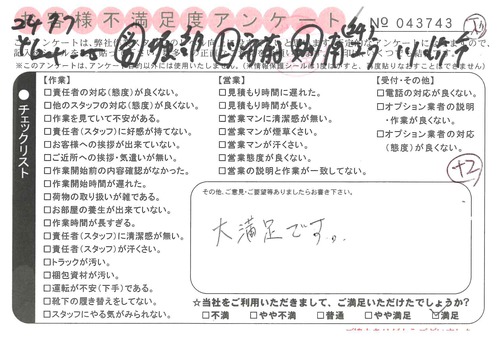 様不満足度アンケート
№ 043743
※このアンケートは、アンケート目的以外には使用いたしません。
チェックリスト
【作業】
□責任者の対応(態度)が良くない。
□他のスタッフの対応(態度)が良くない。
□作業を見ていて不安がある。
□責任者(スタッフ)に好感が持てない。
□お客様への挨拶が出来ていない。
□ご近所への挨拶・気遣いが無い。
□作業開始前の内容確認がなかった。
□作業開始時間が遅れた。
□荷物の取り扱いが雑である。
□お部屋の養生が出来ていない。
□作業時間が長すぎる。
□責任者(スタッフ)に清潔感が無い。
□責任者(スタッフ)が汗くさい。
□トラックが汚い。
□梱包資材が汚い。
□運転が不安(下手)である。
□靴下の履き替えをしてない。
□スタッフにやる気がみられない。
【営業】
□見積もり時間に遅れた。
□見積もり時間が長い。
□営業マンに清潔感が無い。
□営業マンが煙草くさい。
□営業マンが汗くさい。
□営業態度が良くない。
□営業の説明と作業が一致してない。
【受付・その他】
□電話の対応が良くない。
□オプション業者の説明・作業が良くない。
□オプション業者の対応(態度)が良くない。
+2
その他、ご意見・ご要望等ありましたらお書き下さい。
大満足です。
☆当社をご利用いただきまして、ご満足いただけたでしょうか?
□不満 □やや不満 □普通 □やや満足 □満足